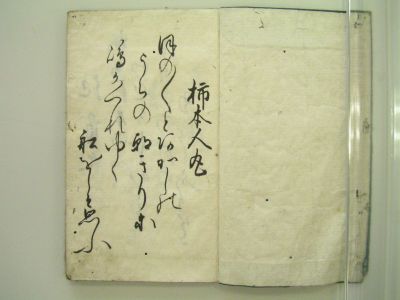 柿本人丸
ほの〱とあかしの
うらの朝きりに
嶋かくれゆく
船をしそ思ふ